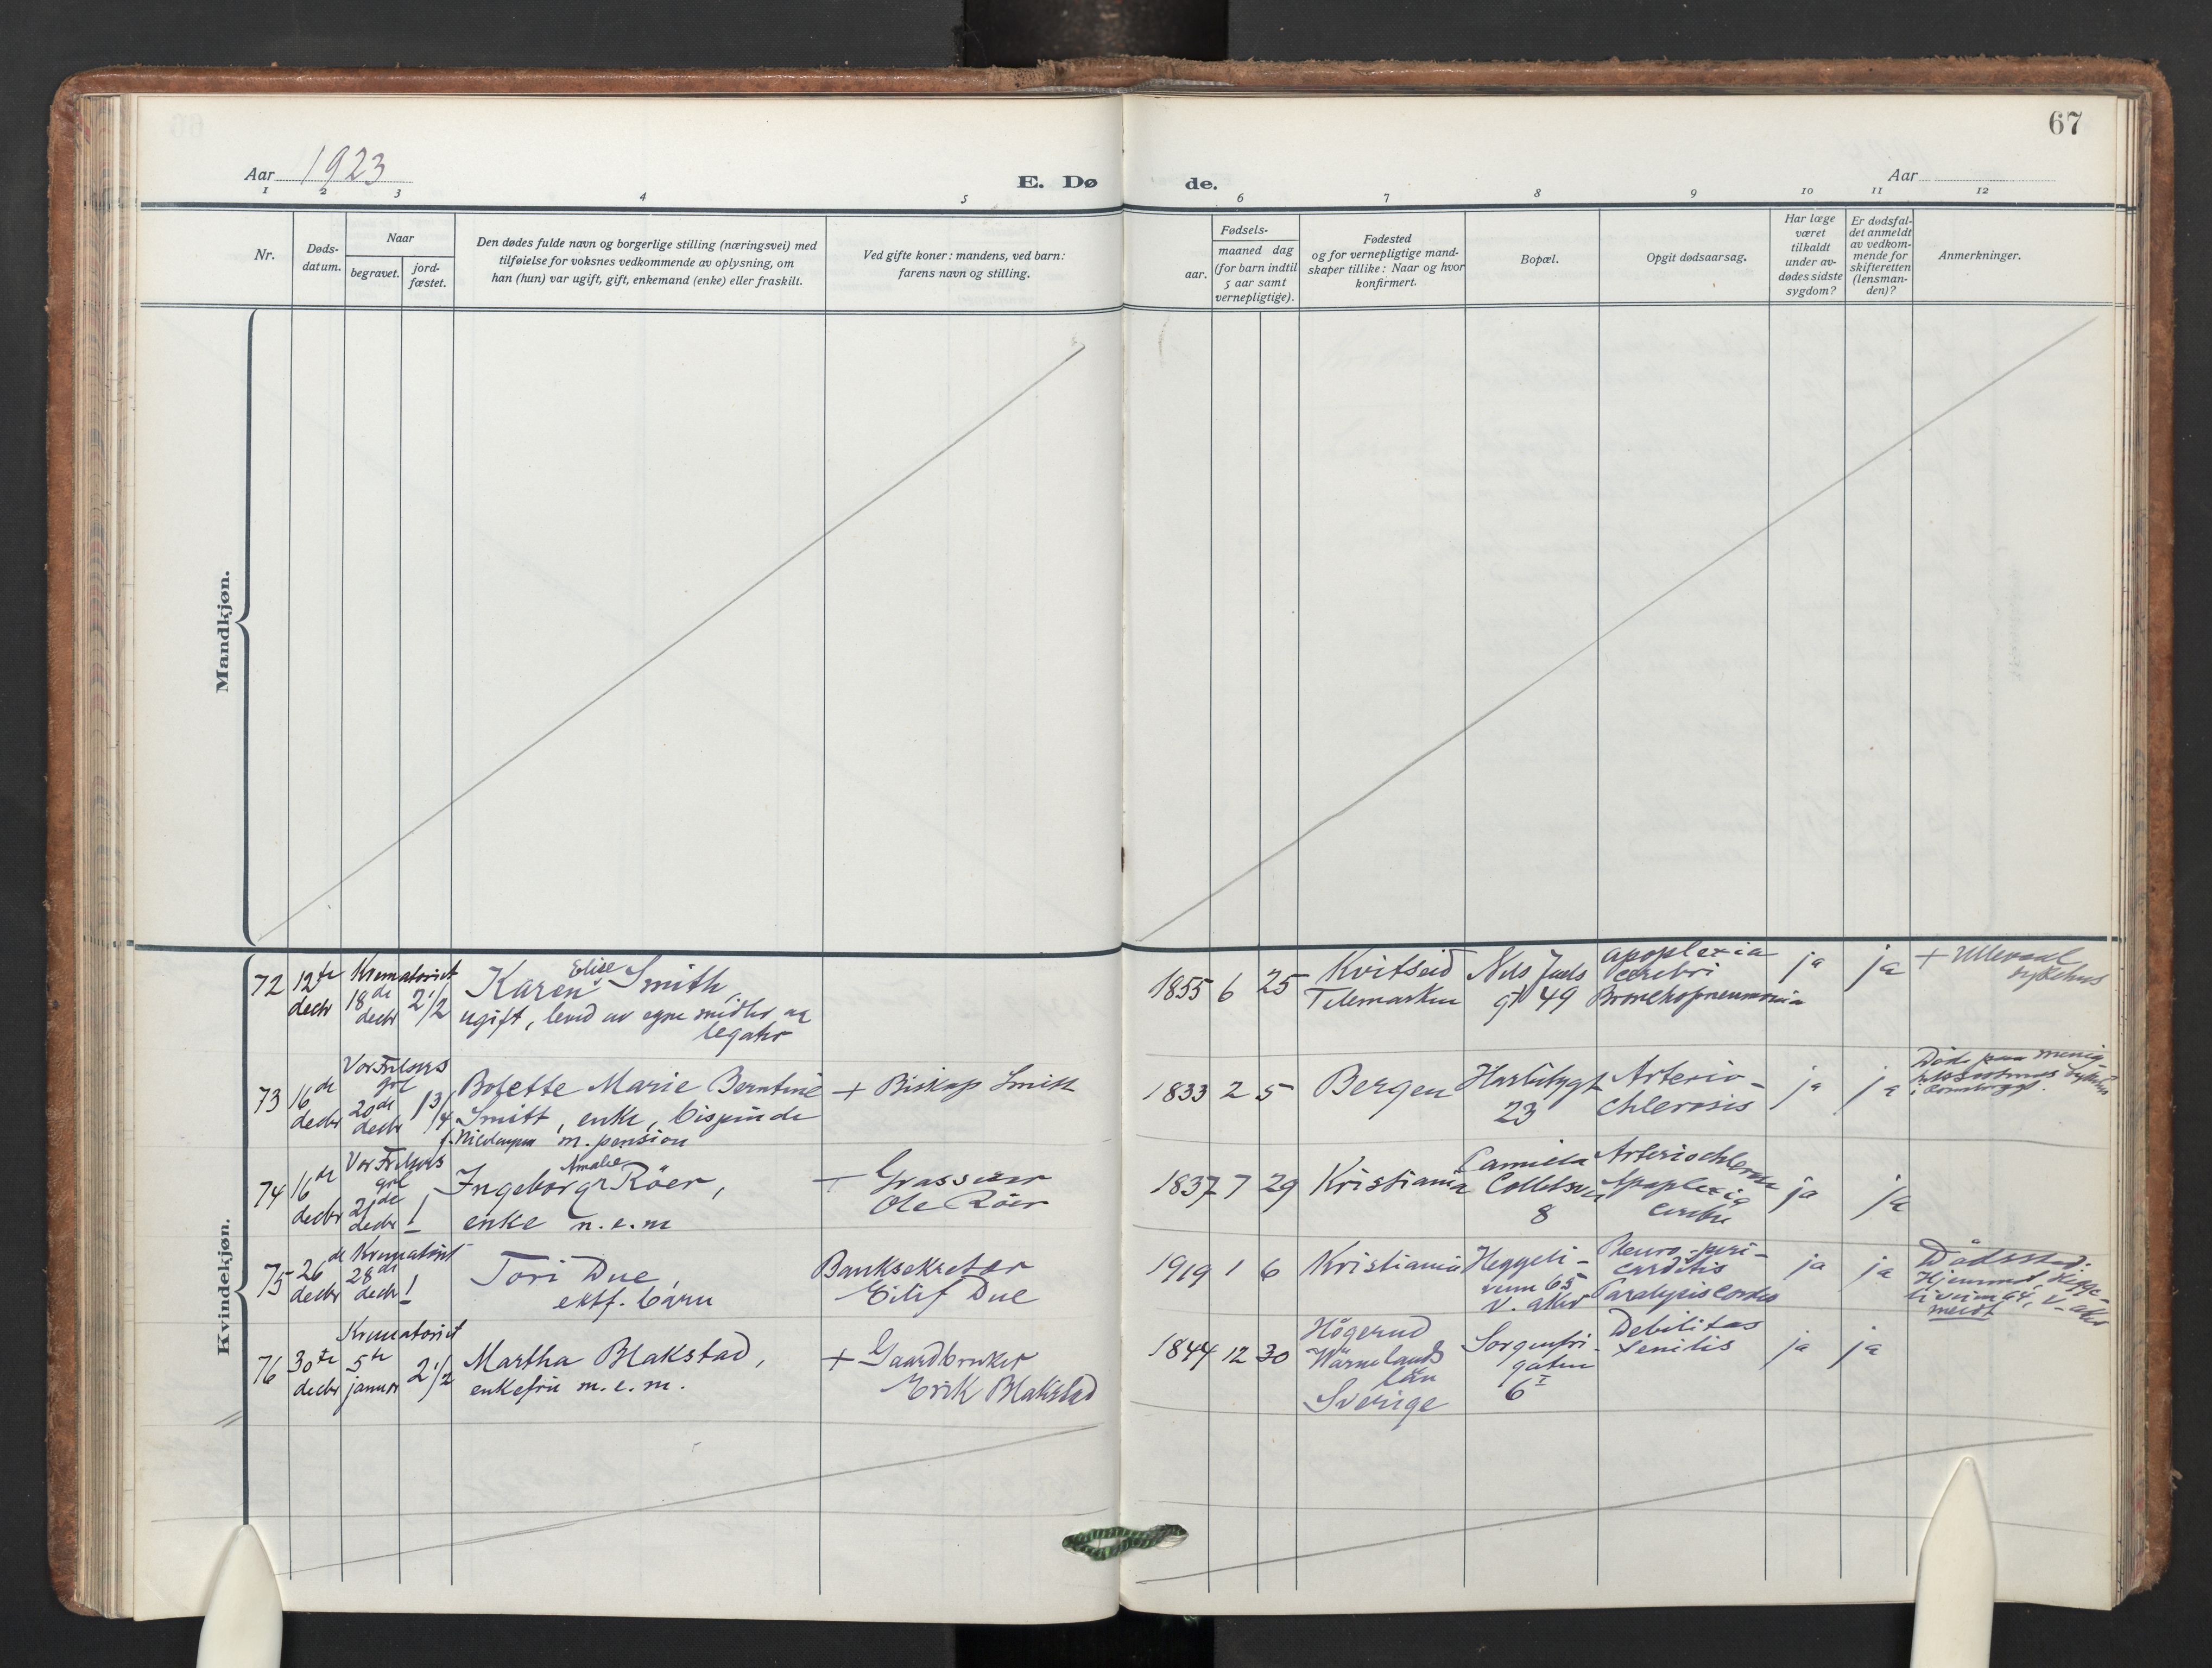 67
Aar 1923
E. Dø
de.
Aar
1 2 3 4 5
6 7 8 9 10 11 12
Nr.
Døds-
datum.
Naar
begravet.
jord-
fæstet.
Den dødes fulde navn og borgerlige stilling (næringsvei) med
tilføielse for voksnes vedkommende av oplysning, om
han (hun) var ugift, gift, enkemand (enke) eller fraskilt.
Ved gifte koner: mandens, ved barn:
farens navn og stilling.
Fødsels-
aar.
maaned dag
(for barn indtil
5 aar samt
vernepligtige).
Fødested
og for vernepligtige mand-
skaper tillike: Naar og hvor
konfirmert.
Bopæl.
Opgit dødsaarsag.
Har læge
været
tilkaldt
under av-
dødes sidste
sygdom?
Er dødsfal-
det anmeldt
av vedkom-
mende for
skifteretten
(lensman-
den)?
Anmerkninger.
Mandkjøn.
Kvindekjøn.
72
12te
decbr
Krematoriet
18de
decbr
2 1/2
Elise
Karen Smith,
ugift, levd av egne midler og
legater
1855 6 25
Kvitseid
Telemarken
Nils Juels
gt 49
apoplexia
cerebri
Bronchopneumonia
ja
ja
+ Ullevaal
sykehus
73
16de
decbr
Vor Frelsers
grl
20de
decbr
1 3/4
Bolette Marie Berntine
Smitt, enke, bispinde
m. pension
+ Biskop Smitt
1833 2 5
Bergen
23
Arterio-
chlerosis
ja
ja
74
16de
decbr
Vor Frelsers
grl
21de
decbr
1
Amalie
Ingeborg Röer,
enke n. e. m
Ole Röer
1837 7 29
Kristiania
Camilla
Colletsvei
8
Apoplexia
cerebri
ja
ja
75
26de
decbr
Krematoriet
28de
decbr
1
Tori Due,
ektf. barn
Banksekretær
Eilif Due
1919 1 6
Kristiania
Heggeli-
veien 65
v. aker
Pleuro-peri-
carditis
Paralysis cordis
ja
ja
Dødssted:
Hjemmet, Hegge-
liveien 64, V. aker
76
30te
decbr
Krematoriet
5te
januar
2 1/2
Martha Blakstad,
enkefru m. e. m.
+ Gaardbruker
Erik Blakstad
1844 12 30
Högerud
Wärmlands
län
Sverige
Sorgenfri-
gaten
6 I
Debilitas
senilis
ja
ja